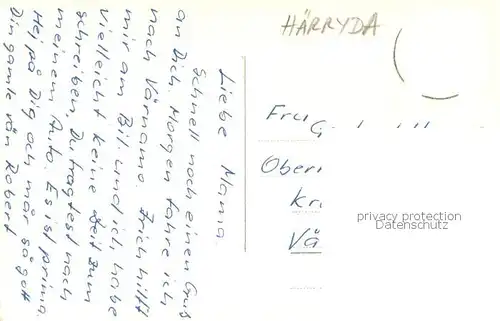 Liebe Mama.
Schnell noch einen Gruß
an Dich. Morgen fahre ich
nach Värnamo. Erich hilft
mir am Bil. und ich habe
vielleicht keine Zeit zum
schreiben. Du fragtest nach
meinem Auto. Es ist prima.
Hej på Dig och mår så gott
Din gamle vän Robert
HÄRRYDA
Fru
Ober
Kr
Vä
privacy protection
Datenschutz